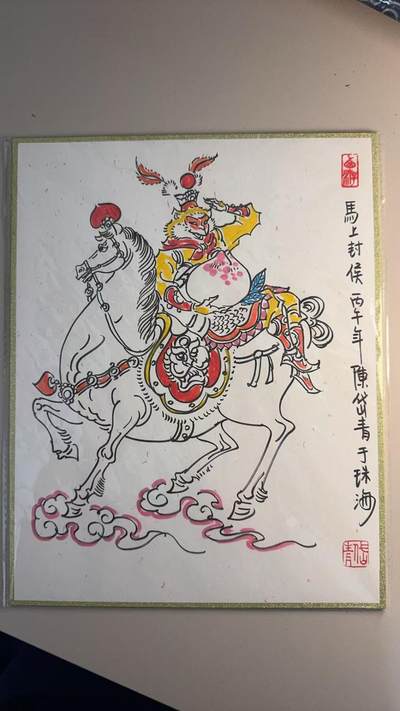 馬上封侯 丙午年 陳岱青于珠海
岱青